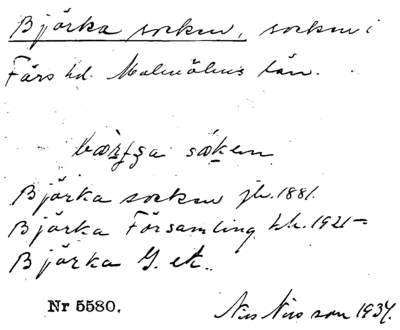 Björka socken, socken i
Färs hd. Malmöhus län.
söken
Björka socken jb. 1881.
Björka Församling kb. 1921-
Björka G. ek.
Nr 5580.
Nils Nilsson 1934.